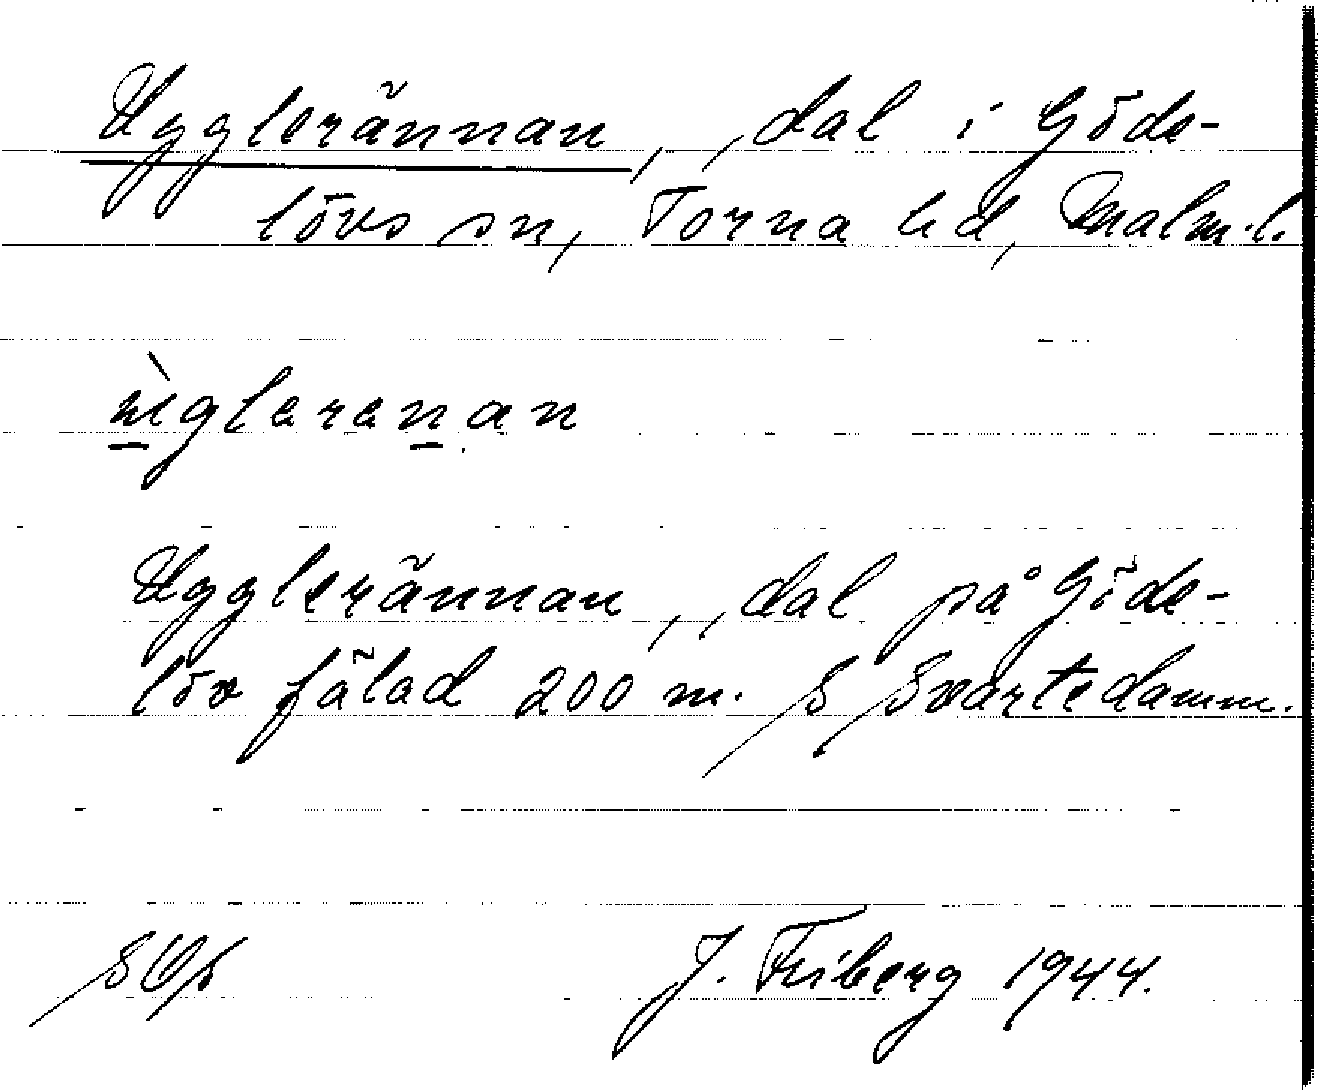 Ugglerännan, , dal i Göds-
lövs sn, Torna hd, Malm.l.
ùglarenan
Ugglerännan, , dal på Göds-
löv fälad 200 m. S Svartedamm.
J. Friberg 1944.